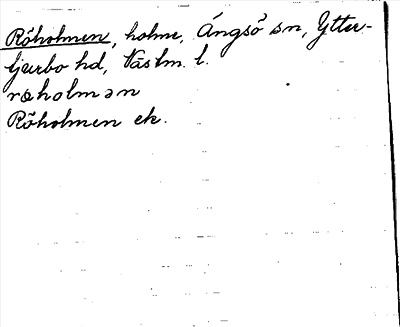 Röholmen, holme, Ängsö sn, Ytter-
tjurbo hd, Västm. l.
röholmən
Röholmen ek.